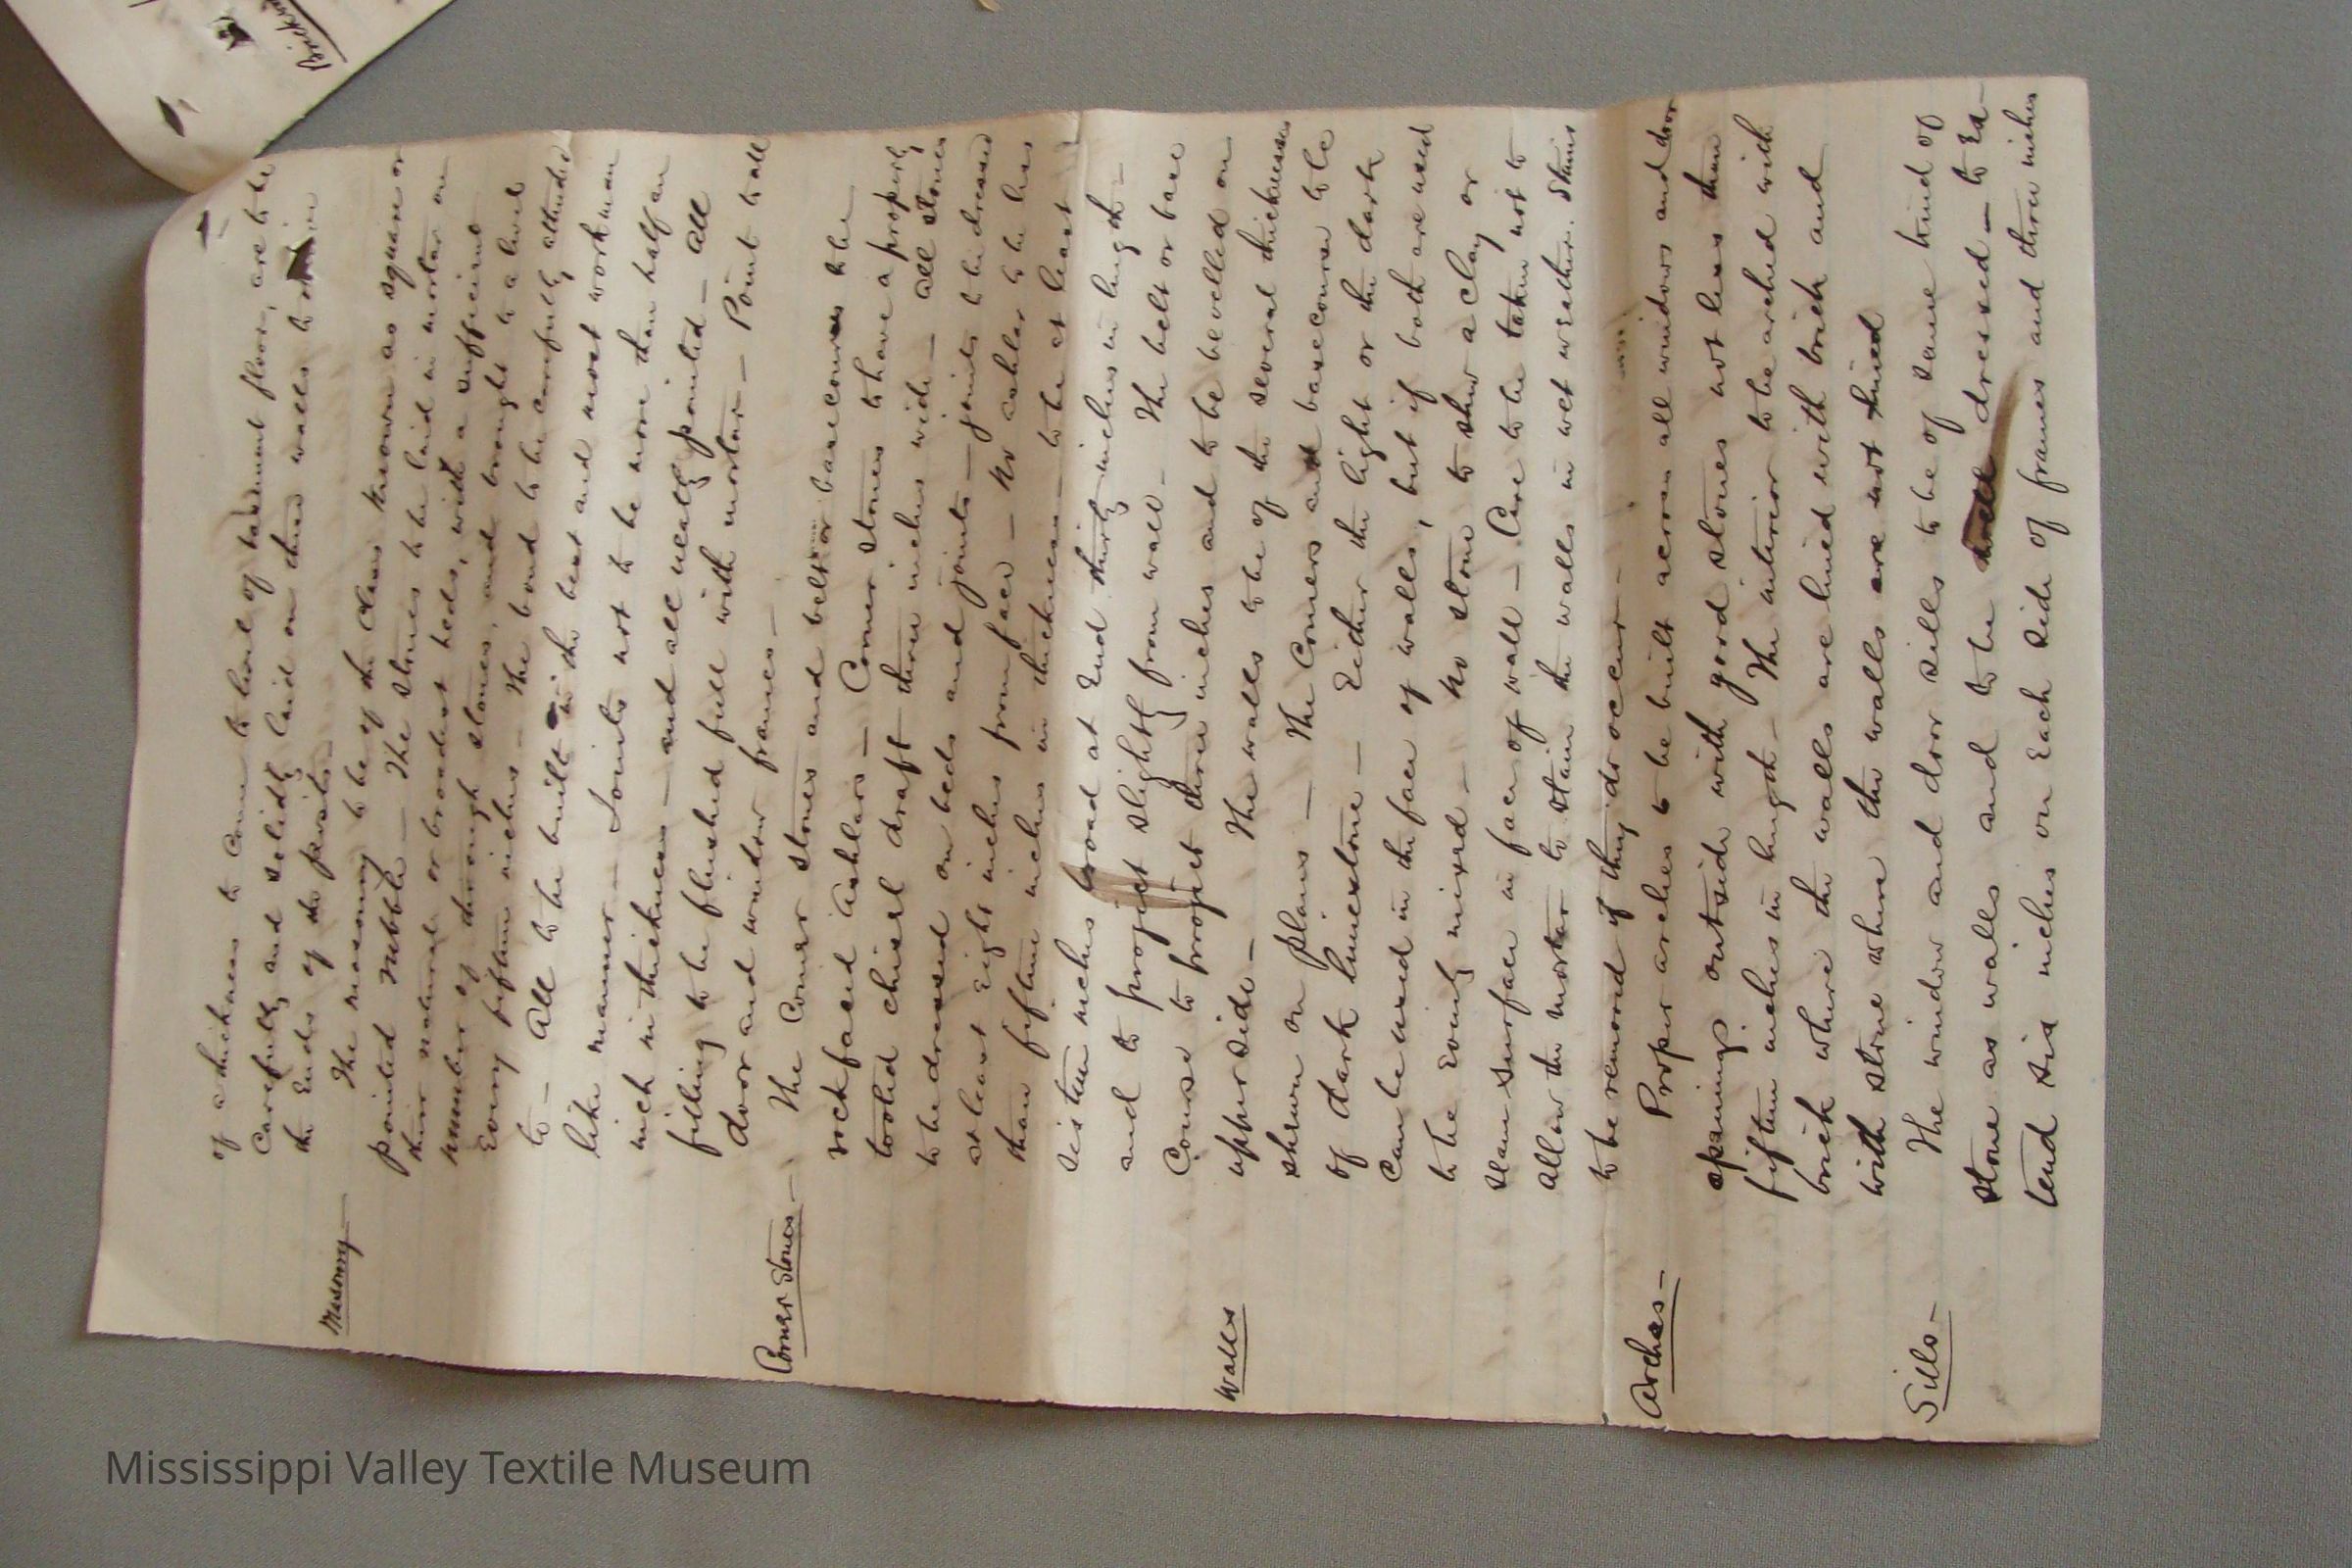 of a thickness to come to level of basement floor, are to be
Carefully and solidly laid on these walls to
the Ends of the posts.
Masonry
The masonry to be of the class known as square or
pointed rubble — The stones to be laid in mortar on
their natural or broadest beds, with a sufficient
number of through stones, and brought to a level
Every fifteen inches — The bond to be carefully attended
to — All to be built in the best and most workman
like manner — Joints not to be more than half an
inch in thickness — and all neatly pointed — All
filling to be flushed full with mortar — Point wall
door and window frames —
Corner Stones —
The Corner stones and belt or basecourses to be
rockfaced Ashlars — Corner stones to have a properly
tooled chisel draft three inches wide — all stones
to be dressed on beds and joints — joints to be dressed
at least Eight inches from face — No ashlar to be less
than fifteen inches in thickness — to be at least
sixteen inches broad at End thirty inches in length —
and to project slightly from wall — The belt or base
Course to project three inches and to be bevelled on
upper side —
Walls
The walls to be of the several thicknesses
shewn on plans — The Corners and basecourse to be
of dark limestone — Either the light or the dark
Can be used in the face of walls, but if both are used
to be Evenly mixed — No stone to shew a clay or
seam surface in face of wall — Care to be taken not to
allow the mortar to stain the walls in wet weather. Stains
to be removed if they do occur —
Arches —
Proper arches to be built across all windows and door
openings outside with good stones not less than
fifteen inches in length — The interior to be arched with
brick where the walls are lined with brick and
with stone where the walls are not lined
Sills —
The window and door sills to be of same kind of
stone as walls and to be well dressed — to Ex-
tend six inches on Each side of frames and three inches
Brickwork
Mississippi Valley Textile Museum